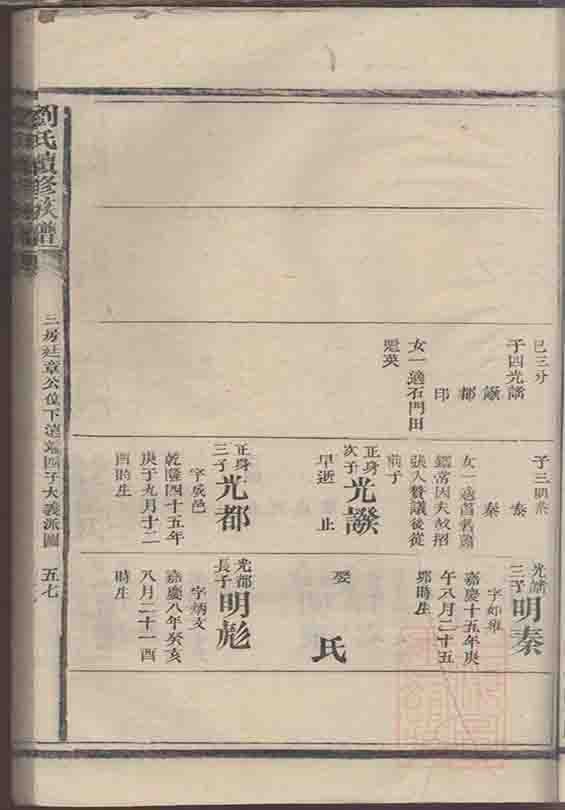 劉氏續修族譜
三房廷章公位下
四子大義派圖
五七
巳三分
子四光譜
都
印
女一適石門田
子三明泰
秦
女一適
故招
張入贅議後從
正身次子光譔
早逝 止
正身三子光都
字成邑
乾隆四十五年
庚子九月十二
酉時生
光譜三子明秦
嘉慶十五年庚
午八月二十五
卯時生
娶
氏
光都長子明彪
字炳文
嘉慶八年癸亥
八月二十一酉
時生